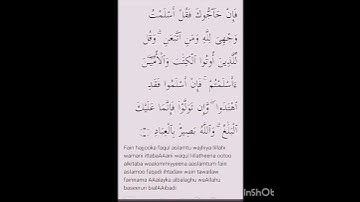 فَإِنْ حَآجُّوكَ فَقُلْ أَسْلَمْتُ
وَجْهِىَ لِلَّهِ وَمَنِ ٱتَّبَعَنِ ۗ وَقُل
لِّلَّذِينَ أُوتُوا۟ ٱلْكِتَٰبَ وَٱلْأُمِّيِّـۧنَ
ءَأَسْلَمْتُمْ ۚ فَإِنْ أَسْلَمُوا۟ فَقَدِ
ٱهْتَدَوا۟ ۖ وَّإِن تَوَلَّوْا۟ فَإِنَّمَا عَلَيْكَ
ٱلْبَلَٰغُ ۗ وَٱللَّهُ بَصِيرٌۢ بِٱلْعِبَادِ
Fain hajjooka faqul aslamtu wajhiya lillahi
wamani ittabaAAani waqul lillatheena ootoo
alkitaba waalommiyyeena aaslamtum fain
aslamoo faqadi ihtadaw wain tawallaw
fainnama AAalayka albalaghu waAllahu
baseerun bialAAibadi
InShOt